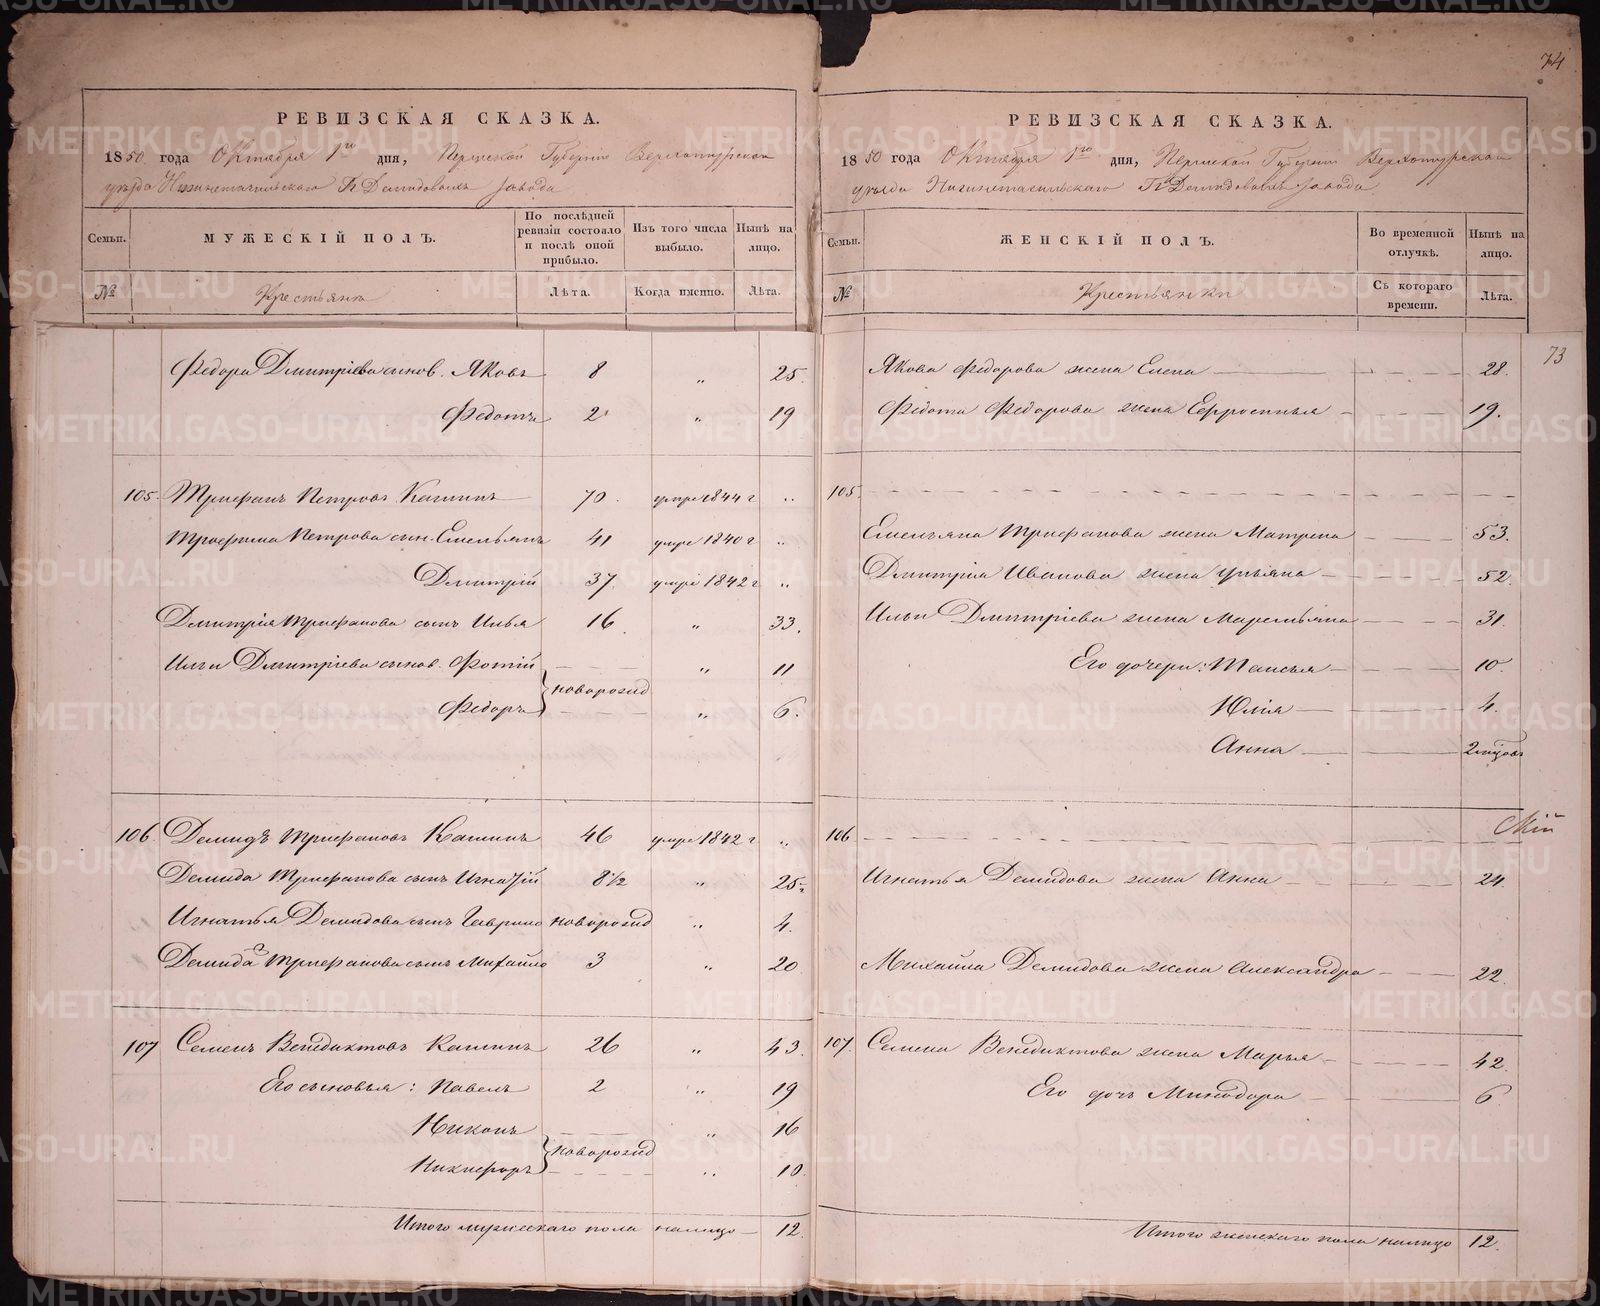 74
РЕВИЗСКАЯ СКАЗКА.
1850 года Октября 1го дня, Пермской Губернии Верхотурского
уезда Нижнетагильского Гг Демидовых завода
Семьи.
МУЖЕСКІЙ ПОЛЪ.
По послѣдней ревизіи состояло и послѣ оной прибыло.
Изъ того числа выбыло.
Нынѣ на лицо.
№
Крестьяне
Лѣта.
Когда именно.
Лѣта.
Федора Дмитріева сынов. Яковъ 8 „ 25.
Федотъ 2 „ 19
105. Трифанъ Петровъ Кашинъ 70. умре 1844 г „
Трифана Петрова сын. Емельянъ 41 умре 1840 г „
Дмитрій 37. умре 1842 г „
Дмитрія Трифанова сынъ Илья 16 „ 33.
Ильи Дмитріева сынов. Фотій „ 11
новорожд
Федоръ „ 6.
106 Демидъ Трифановъ Кашинъ 46 умре 1842 г „
Демида Трифанова сынъ Игнатій 8 1/2 „ 25.
Игнатья Демидова сынъ Гаврило новорожд „ 4.
Демида Трифанова сынъ Михайло 3 „ 20
107 Семенъ Венедиктовъ Кашинъ 26 „ 43.
Его сыновья: Павелъ 2 „ 19
Никонъ „ 16
новорожд
Никифоръ „ 10
Итого мужескаго пола налицо — 12.
РЕВИЗСКАЯ СКАЗКА.
1850 года Октября 1го дня, Пермской Губернии Верхотурского
уезда Нижнетагильского Гг Демидовых завода
Семьи.
ЖЕНСКІЙ ПОЛЪ.
Во временной отлучкѣ.
Нынѣ на лицо.
№
Крестьянки
Съ котораго времени.
Лѣта.
73
Якова Федорова жена Елена 28.
Федота Федорова жена Ефросинья 19.
105.
Емельяна Трифанова жена Матрена 53.
Дмитрія Иванова жена Ульяна 52.
Ильи Дмитріева жена Маремьяна 31.
Его дочери: Таисья 10.
Юлія 4.
Анна 2 мцовъ
106
Игнатья Демидова жена Анна 24.
Михайла Демидова жена Александра 22.
107. Семена Венедиктова жена Марья 42.
Его дочь Минодора 6
Итого женскаго пола налицо 12.
METRIKI.GASO-URAL.RU